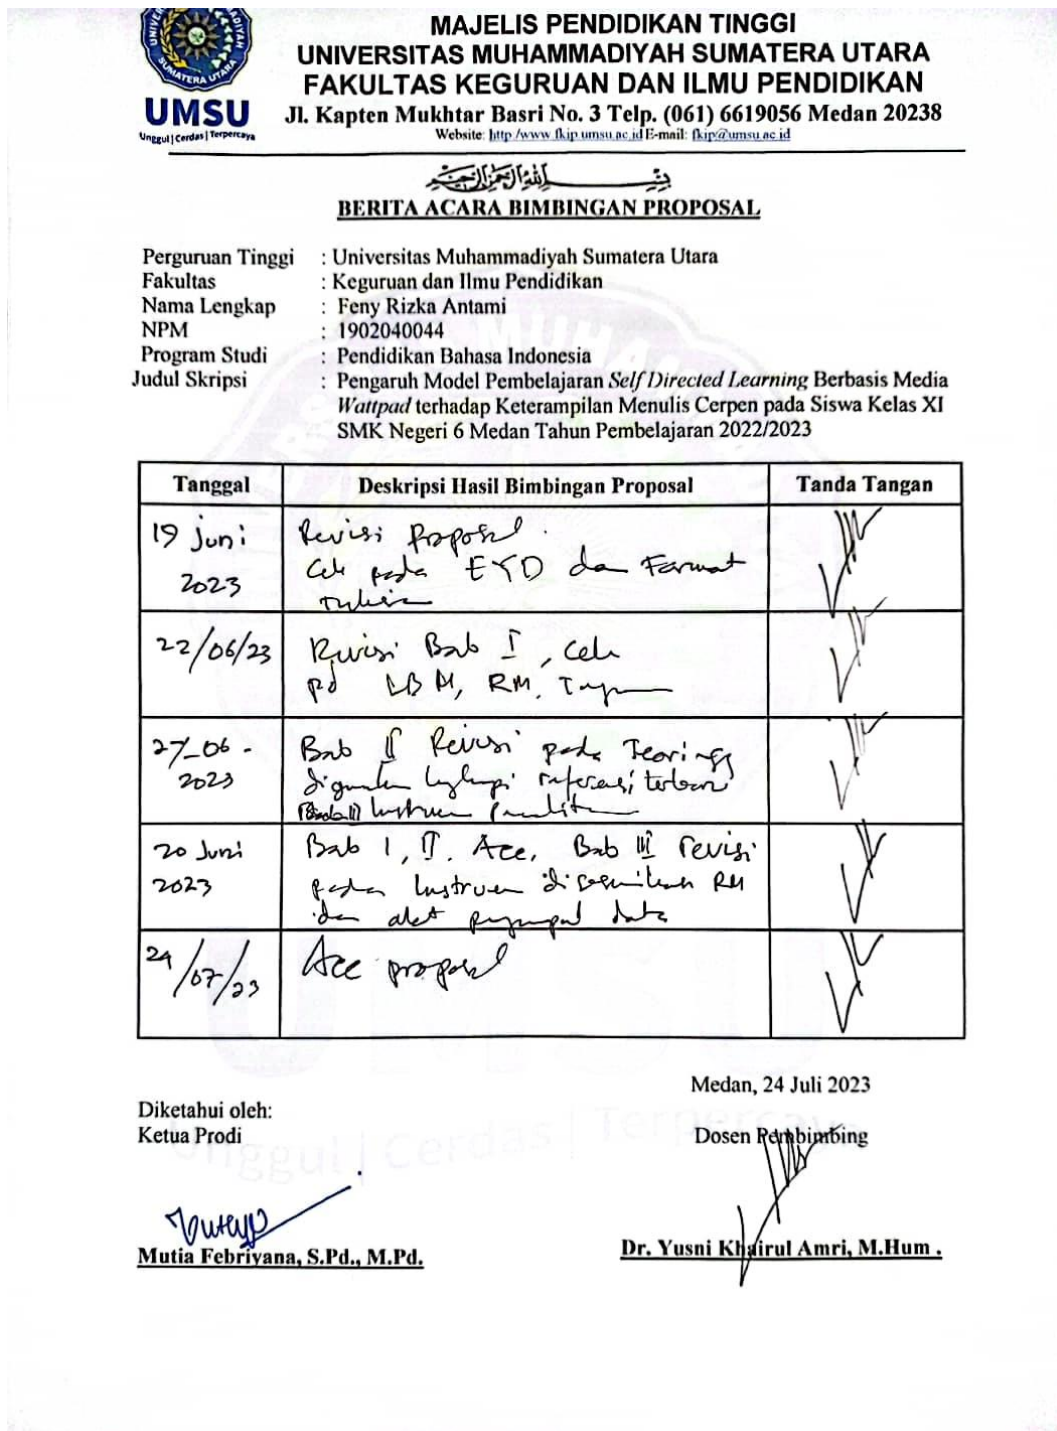 MAJELIS PENDIDIKAN TINGGI
UNIVERSITAS MUHAMMADIYAH SUMATERA UTARA
FAKULTAS KEGURUAN DAN ILMU PENDIDIKAN
UMSU
Unggul | Cerdas | Terpercaya
Jl. Kapten Mukhtar Basri No. 3 Telp. (061) 6619056 Medan 20238
Website: http:/www.fkip.umsu.ac.id E-mail: fkip@umsu.ac.id
BERITA ACARA BIMBINGAN PROPOSAL
Perguruan Tinggi : Universitas Muhammadiyah Sumatera Utara
Fakultas : Keguruan dan Ilmu Pendidikan
Nama Lengkap : Feny Rizka Antami
NPM : 1902040044
Program Studi : Pendidikan Bahasa Indonesia
Judul Skripsi : Pengaruh Model Pembelajaran Self Directed Learning Berbasis Media
Wattpad terhadap Keterampilan Menulis Cerpen pada Siswa Kelas XI
SMK Negeri 6 Medan Tahun Pembelajaran 2022/2023
Tanggal Deskripsi Hasil Bimbingan Proposal Tanda Tangan
19 Juni Revisi Proposal.
Cek pada EYD dan Format
2023
22/06/23 Revisi Bab I, Cek
pd LBM, RM,
27-06- Bab II Revisi pada Teori yg
2023 digunakan lengkapi referensi
20 Juni Bab I, II. Acc, Bab III revisi
2023 pada Instrumen disesuaikan RM
dan alat data
24/07/23 Acc proposal
Medan, 24 Juli 2023
Diketahui oleh:
Ketua Prodi Dosen Pembimbing
Mutia Febriyana, S.Pd., M.Pd. Dr. Yusni Khairul Amri, M.Hum .
Unggul | Cerdas | Terpercaya